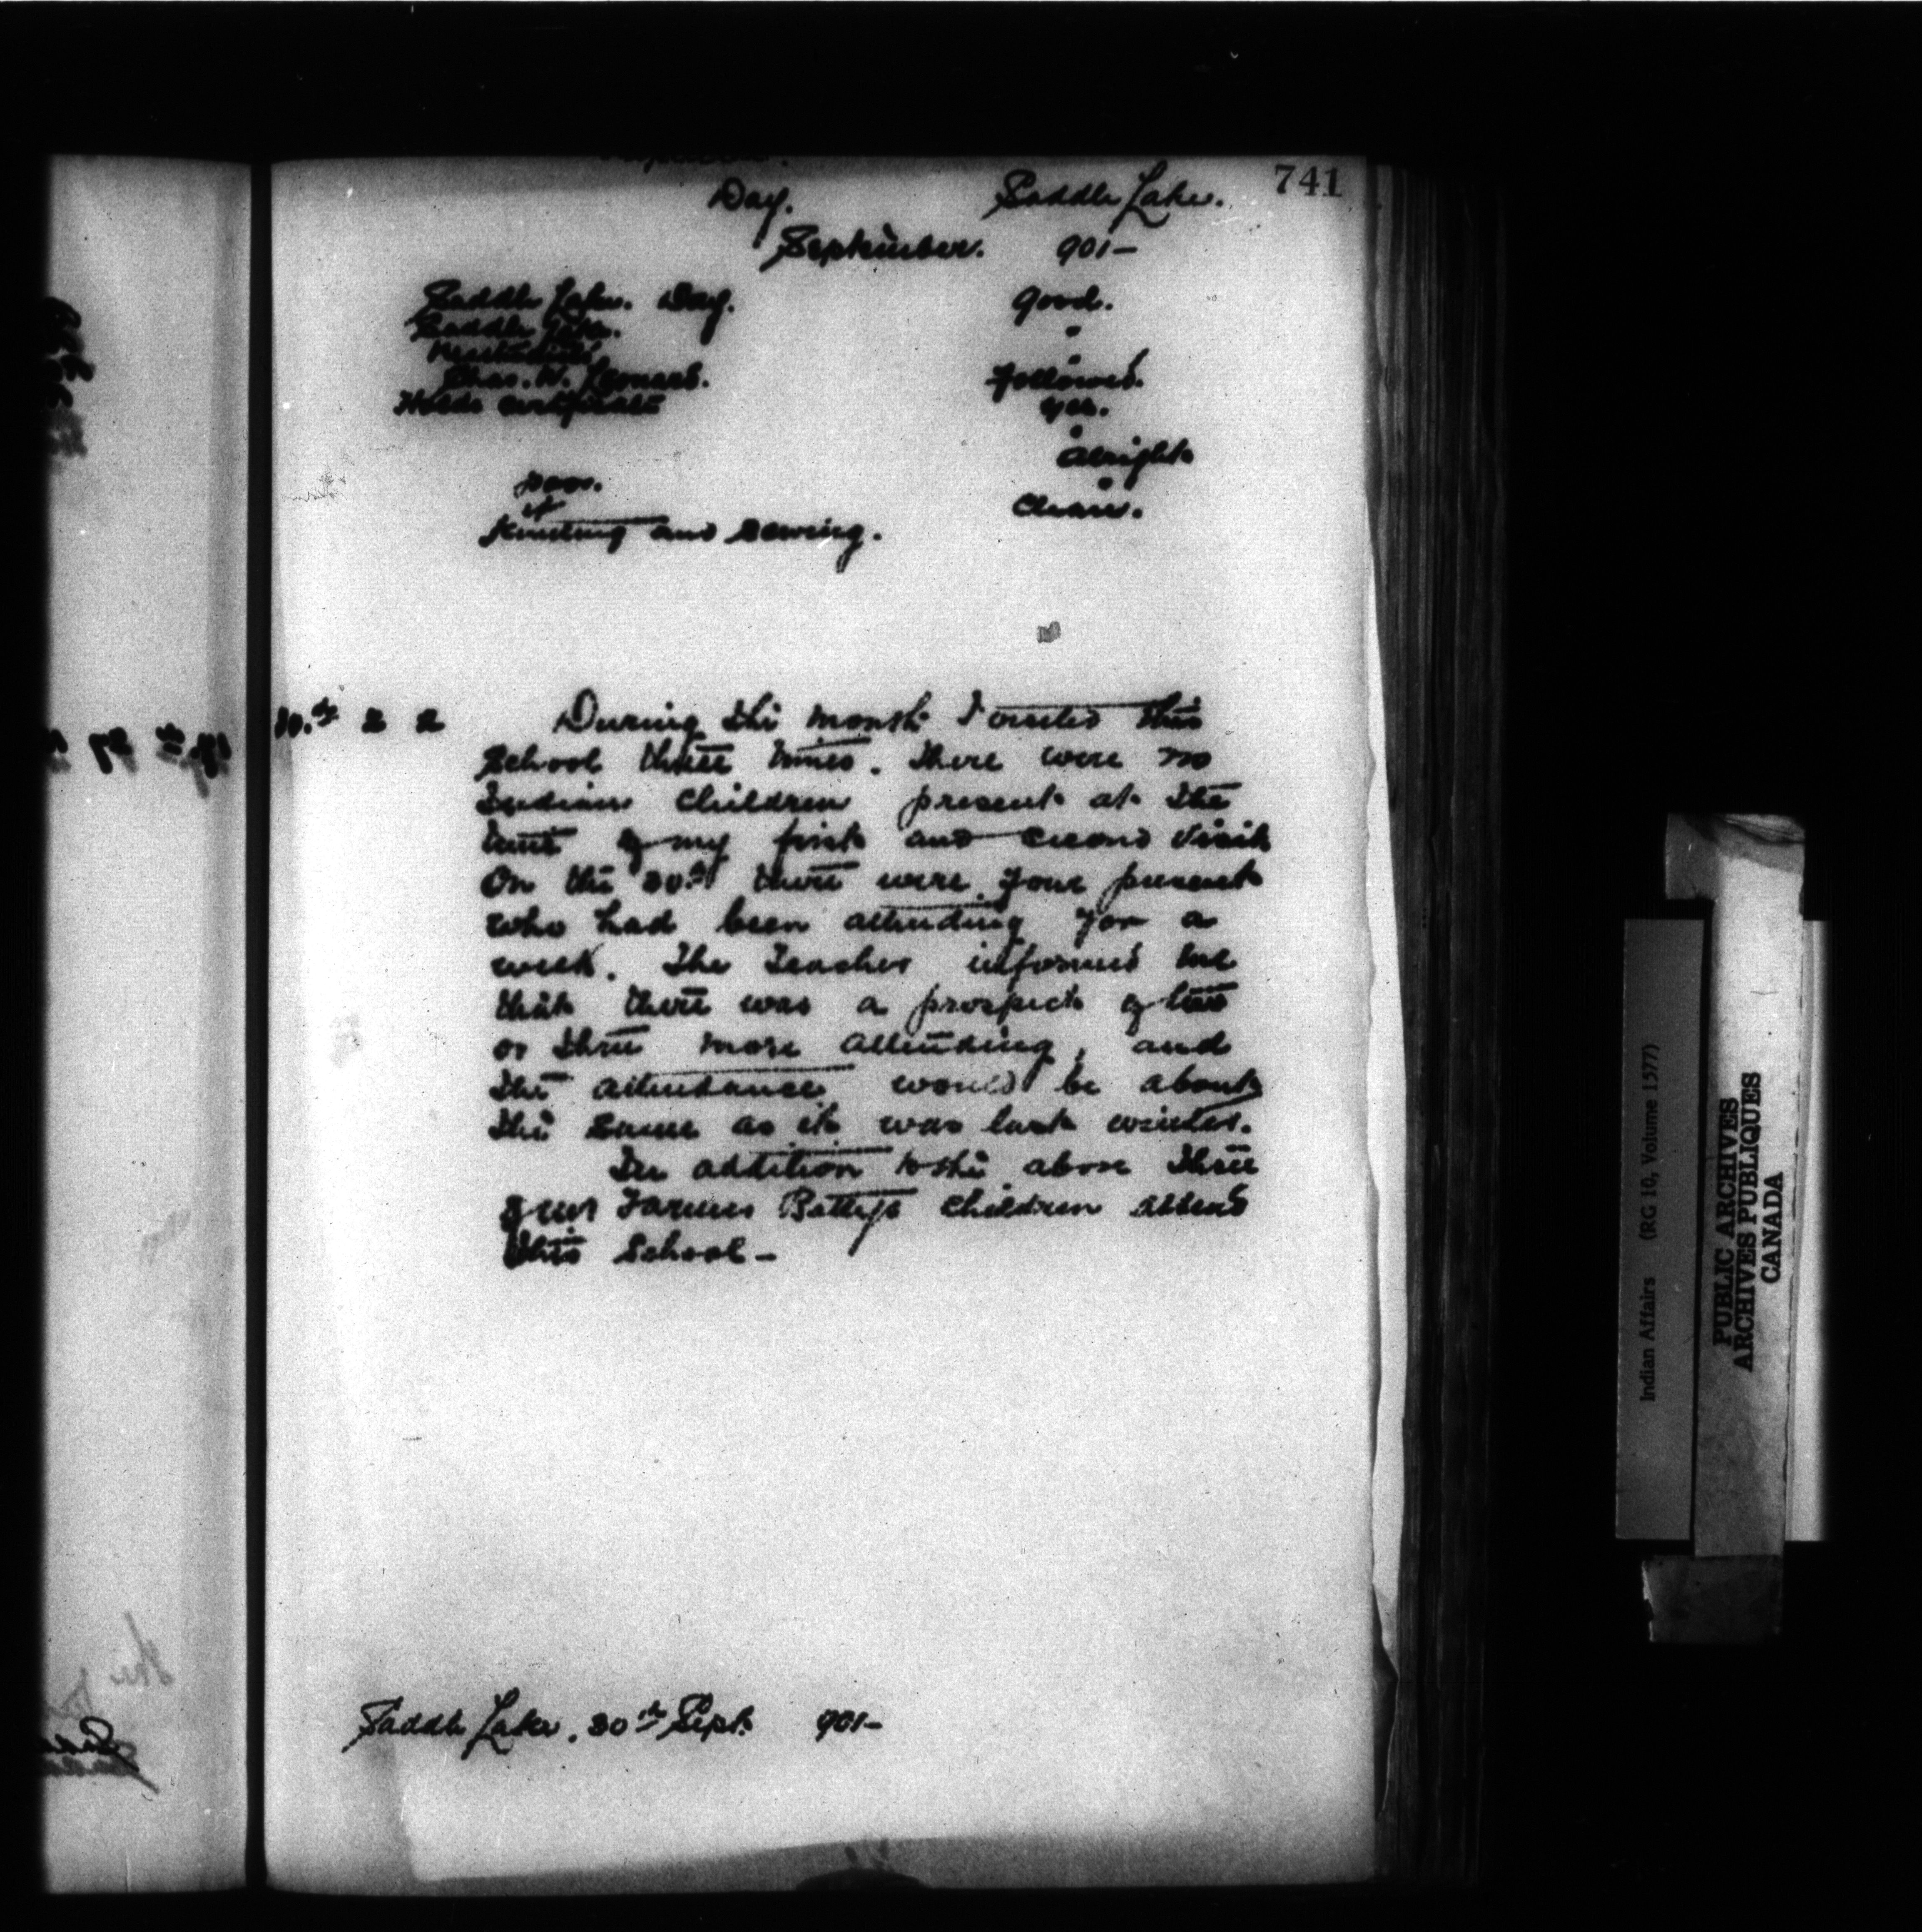 741
Day. Saddle Lake.
September. 901-
Saddle Lake. Day. Good.
Saddle Lake. "
Methodist. "
Chas. W. Leonard. Followed.
Holds certificate yes.
"
Alright
Poor. "
Clean.
Knitting and sewing.
30.th 2 2 During the month I visited this
School three times. There were no
Indian Children present at the
time of my first and second visit
On the 30th there were four present
who had been attending for a
week. The Teacher informed me
that there was a prospect of two
or three more attending, and
the attendance would be about
the same as it was last winter.
In addition to the above three
of Farmer Batty's children attend
this School -
Saddle Lake, 30th Sept. 901-
Indian Affairs (RG 10, Volume 1577)
PUBLIC ARCHIVES
ARCHIVES PUBLIQUES
CANADA